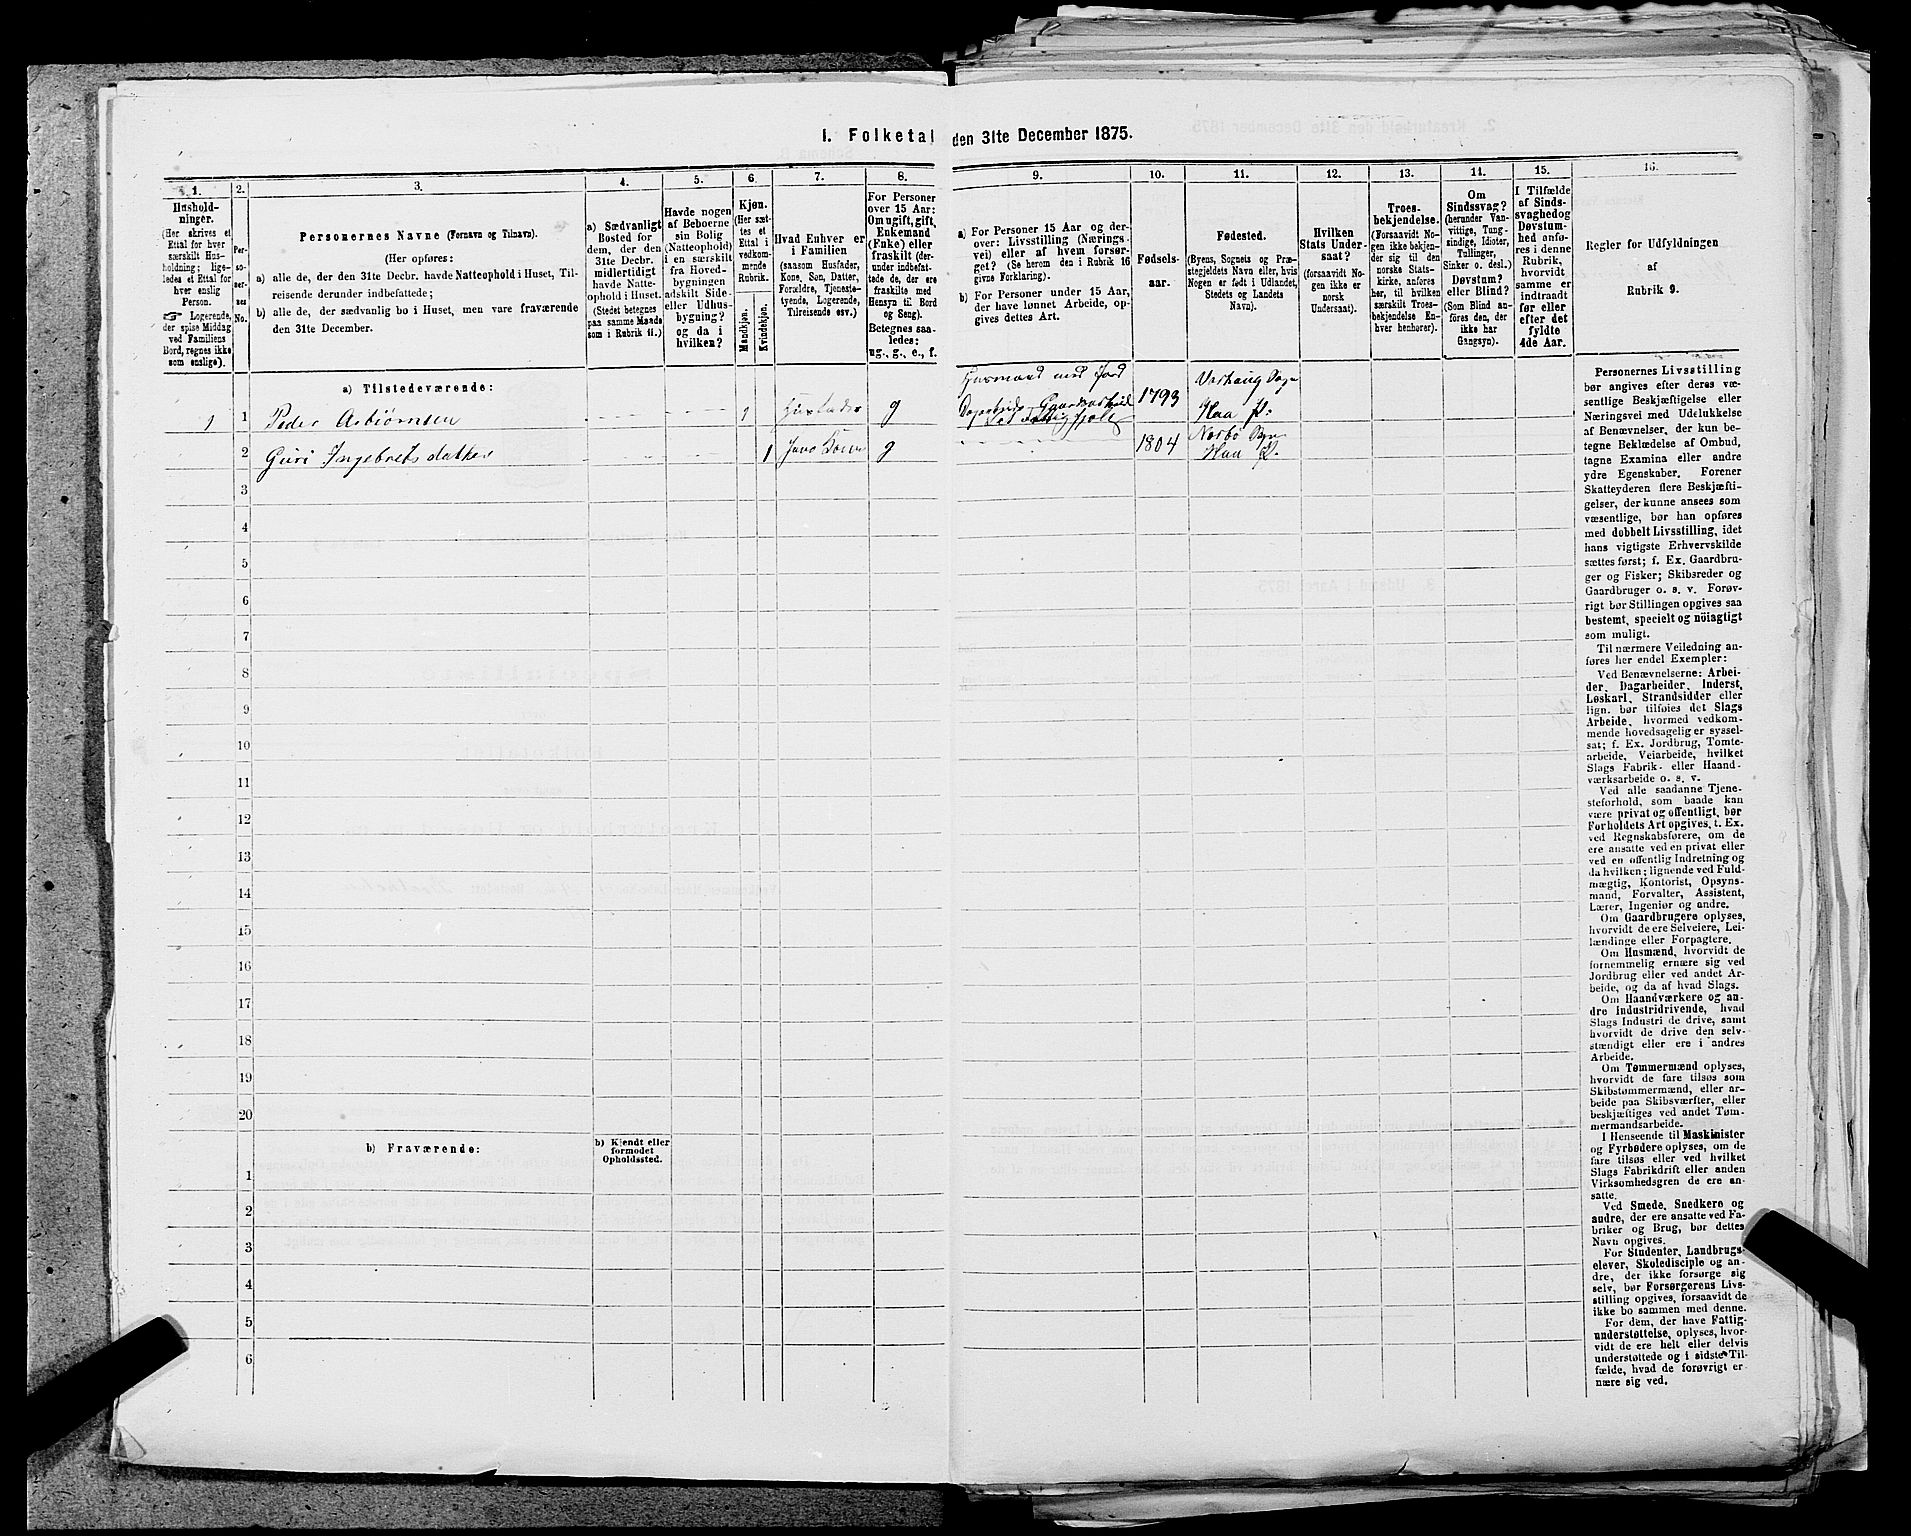 1. Folketal den 31te December 1875.
1.
2.
3.
4.
5.
6.
7.
8.
9.
10.
11.
12.
13.
14.
15.
16.
Hushold-
ninger.
(Her skrives et
Ettal for hver
særskilt Hus-
holdning; lige-
ledes et Ettal for
hver enslig
Person.
☞ Logerende,
der spise Middag
ved Familiens
Bord, regnes ikke
som enslige).
Per-
so-
ner-
nes
No.
Personernes Navne (Fornavn og Tilnavn).
(Her opføres:
a) alle de, der den 31te Decbr. havde Natteophold i Huset, Til-
reisende derunder indbefattede;
b) alle de, der sædvanlig bo i Huset, men vare fraværende
den 31te December.
a) Sædvanligt
Bosted for
dem, der den
31te Decbr.
midlertidigt
havde Natte-
ophold i Huset.
(Stedet betegnes
paa samme Maade
som i Rubrik 11.)
Havde nogen
af Beboerne
sin Bolig
(Natteophold)
i en særskilt
fra Hoved-
bygningen
adskilt Side-
eller Udhus-
bygning?
og da i
hvilken?
Kjøn.
(Her sæt-
tes et
Ettal i
vedkom-
mende
Rubrik.
Mandkjøn.
Kvindekjøn.
Hvad Enhver er
i Familien
(saasom Husfader,
Kone, Søn, Datter,
Forældre, Tjeneste-
tyende, Logerende,
Tilreisende osv.)
For Personer
over 15 Aar:
Om ugift, gift,
Enkemand
(Enke) eller
fraskilt (der-
under indbefat-
tede de, der ere
fraskilte med
Hensyn til Bord
og Seng).
Betegnes saa-
ledes:
ug., g., e., f.
a) For Personer 15 Aar og der-
over: Livsstilling (Nærings-
vei) eller af hvem forsør-
get? (Se herom den i Rubrik 16
givne Forklaring).
b) For Personer under 15 Aar,
der have lønnet Arbeide, op-
gives dettes Art.
Fødsels-
aar.
Fødested.
(Byens, Sognets og Præ-
stegjeldets Navn eller, hvis
Nogen er født i Udlandet,
Stedets og Landets
Navn).
Hvilken
Stats Under-
saat?
(forsaavidt No-
gen ikke er
norsk
Undersaat).
Troes-
bekjendelse.
(Forsaavidt No-
gen ikke bekjen-
der sig til den
norske Stats-
kirke, anføres
her, til hvilken
særskilt Troes-
bekjendelse En-
hver henhører).
Om
Sindssvag?
(herunder Van-
vittige, Tung-
sindige, Idioter,
Tullinger,
Sinker o. desl.)
Døvstum?
eller Blind?
(Som Blind an-
føres den, der
ikke har
Gangsyn).
I Tilfælde
af Sinds-
svaghed og
Døvstum-
hed anfø-
res i denne
Rubrik,
hvorvidt
samme er
indtraadt
før eller
efter det
fyldte
4de Aar.
Regler for Udfyldningen
af
Rubrik 9.
a) Tilstedeværende:
Husmand med Jord
1 1 Peder Asbiørnsen 1 Husfader g Dagarbeide Gaardsarbeid 1793 Varhaug Sogn
Haa P.
2 Guri Ingebrets datter 1 Hans Kone g 1804 Nærbø Sogn
Haa P.
3
4
5
6
7
8
9
10
11
12
13
14
15
16
17
18
19
20
b) Fraværende:
b) Kjendt eller
formodet
Opholdssted.
1
2
3
4
5
6
Personernes Livsstilling
bør angives efter deres væ-
sentlige Beskjæftigelse eller
Næringsvei med Udelukkelse
af Benævnelser, der kun be-
tegne Beklædelse af Ombud,
tagne Examina eller andre
ydre Egenskaber. Forener
Skatteyderen flere Beskjæfti-
gelser, der kunne ansees som
væsentlige, bør han opføres
med dobbelt Livsstilling, idet
hans vigtigste Erhvervskilde
sættes først; f. Ex. Gaardbru-
ger og Fisker; Skibsreder og
Gaardbruger o. s. v. Forøv-
rigt bør Stillingen opgives saa
bestemt, specielt og nöiagtigt
som muligt.
Til nærmere Veiledning an-
føres her endel Exempler:
Ved Benævnelserne: Arbei-
der, Dagarbeider, Inderst,
Løskarl, Strandsidder eller
lign. bør tilføies det Slags
Arbeide, hvormed vedkom-
mende hovedsagelig er syssel-
sat; f. Ex. Jordbrug, Tomte-
arbeide, Veiarbeide, hvilket
Slags Fabrik- eller Haand-
værksarbeide o. s. v.
Ved alle saadanne Tjene-
steforhold, som baade kan
være privat og offentligt, bør
Forholdets Art opgives, t. Ex.
ved Regnskabsførere, om de
ere ansatte ved en privat eller
ved en offentlig Indretning og
da hvilken; lignende ved Fuld-
mægtig, Kontorist, Opsyns-
mand, Forvalter, Assistent,
Lærer, Ingeniør og andre.
Om Gaardbrugere oplyses,
hvorvidt de ere Selveiere, Lei-
lændinge eller Forpagtere.
Om Husmænd, hvorvidt de
fornemmelig ernære sig ved
Jordbrug eller ved andet Ar-
beide, og da af hvad Slags.
Om Haandværkere og an-
dre Industridrivende, hvad
Slags Industri de drive, samt
hvorvidt de drive den selv-
stændigt eller ere i andres
Arbeide.
Om Tømmermænd oplyses,
hvorvidt de fare tilsøs som
Skibstømmermænd, eller ar-
beide paa Skibsværfter, eller
beskjæftiges ved andet Tøm-
mermandsarbeide.
I Henseende til Maskinister
og Fyrbødere oplyses, om de
fare tilsøs eller ved hvilket
Slags Fabrikdrift eller anden
Virksomhedsgren de ere an-
satte.
Ved Smede, Snedkere og
andre, der ere ansatte ved Fa-
briker og Brug, bør dettes
Navn opgives.
For Studenter, Landbrugs-
elever, Skoledisciple og an-
dre, der ikke forsørge sig
selv, bør Forsørgerens Livs-
stilling opgives, forsaavidt de
ikke bo sammen med denne.
For dem, der have Fattig-
understøttelse, oplyses, hvor-
vidt de ere helt eller delvis
understøttede og i sidste Til-
fælde, hvad de forøvrigt er-
nære sig ved.